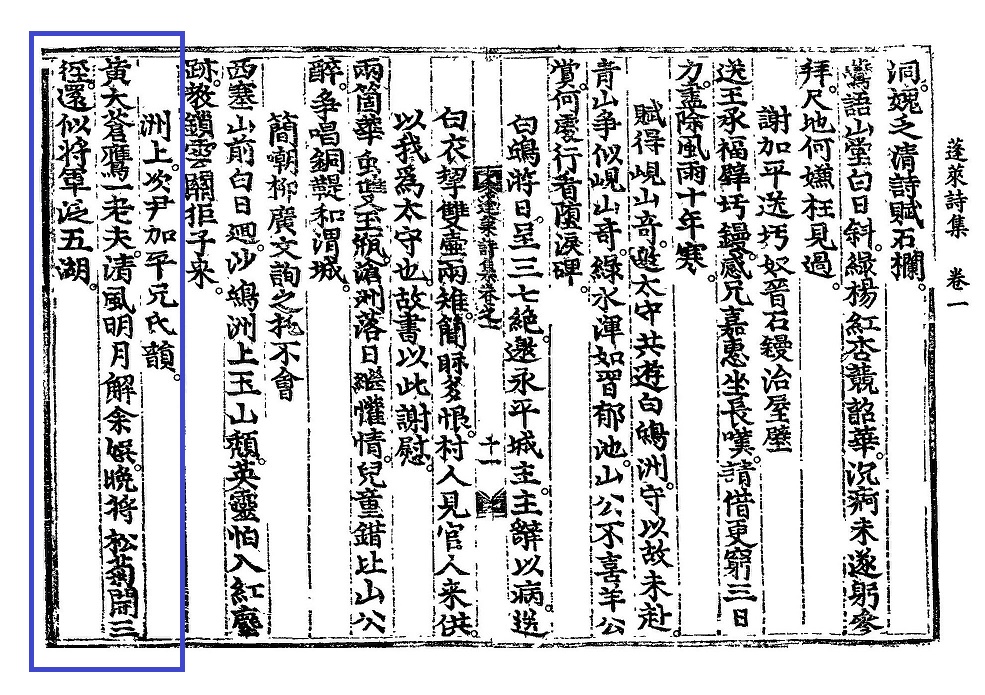 蓬萊詩集 卷一
洞。媿乏清詩賦石欄。
鶯語山堂白日斜。綠楊紅杏競韶華。沉痾未遂躬參
拜。尺地何嫌枉見過。
謝加平送圬奴晉石鏝治屋壁
送王承福圬鏝。感兄嘉惠坐長嘆。請借更窮三日
力。盡除風雨十年寒。
賦得峴山奇。邀太守共遊白鷗洲。守以故未赴。
青山争似峴山奇。綠水渾如習郁池。山公不喜羊公
賞。何處行看墮淚碑。
白鷗將日。呈三七絶。邀永平城主。主辭以病。送
蓬萊詩集卷之一 十一
白衣挈雙壺兩雉。簡多恨。村人見官人来供。
以我爲太守也。故書以此謝慰。
兩箇華虫雙玉瓶。滄洲落日繼懽情。兒童錯比山公
醉。争唱銅鞮和渭城。
簡嘲柳廣文詢之托不會
西塞山前白日廻。沙鷗洲上玉山頹。英靈怕入紅塵
跡。教鎖雲關拒子来。
洲上。次尹加平兄氏韻。
黃犬蒼鷹一老夫。清風明月解余娛。晩將松菊開三
徑。還似將軍泛五湖。